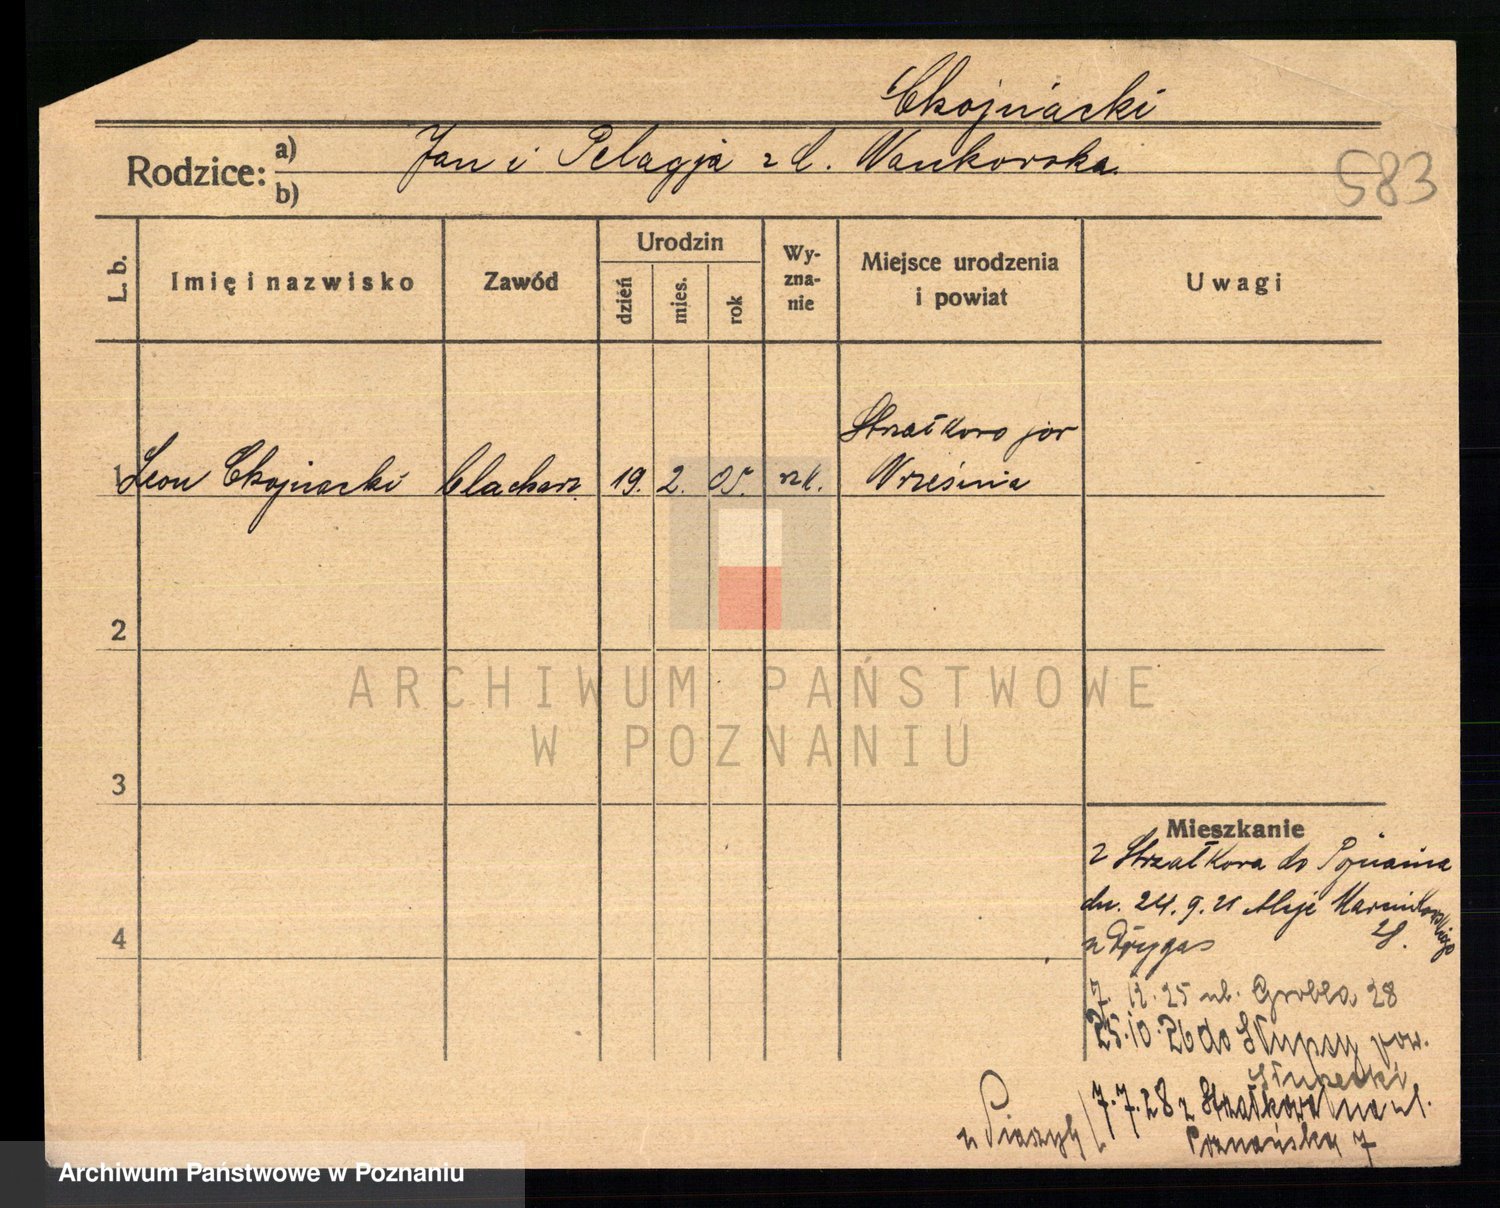 Chojnacki
Rodzice: a) b)
Jan i Pelagja z d. Wankowska
583
L. b.
Imię i nazwisko
Zawód
Urodzin
dzień
mies.
rok
Wy-
zna-
nie
Miejsce urodzenia
i powiat
Uwagi
1 Leon Chojnacki blacharz 19. 2. 05. rzk. Strzałkowo pow
Września
2
3
4
Mieszkanie
z Strzałkowa do Poznania
dn. 24. 9. 25 Aleje Marcinkowskiego
28.
u Drygas
7. 12. 25 ul. Grobla 28
25.10.26 do Słupsy pow.
Słupecki
7.7.28 z Strzałkowa na ul.
Poznańską 7
ARCHIWUM PAŃSTWOWE
W POZNANIU
Archiwum Państwowe w Poznaniu